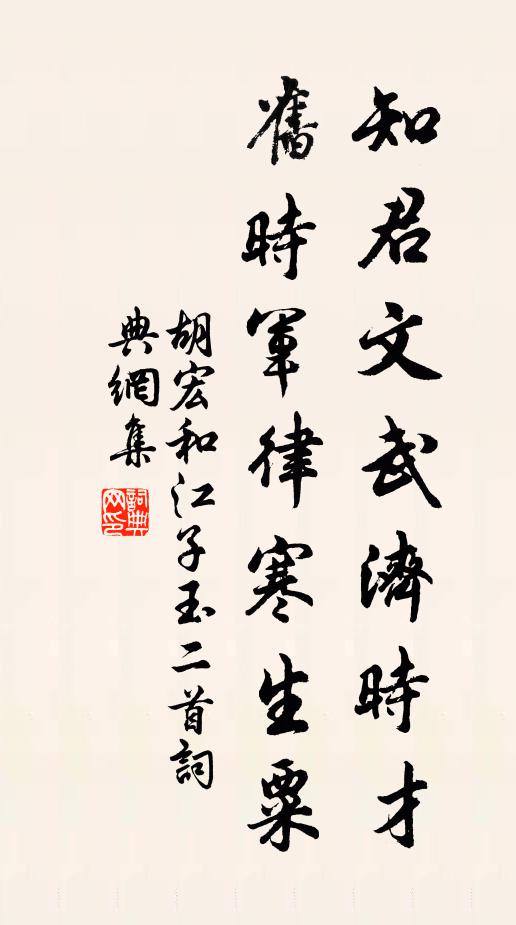 知君文武濟時才
舊時軍律寒生粟
胡宏和江子玉二首詞
典網集
詞典網印